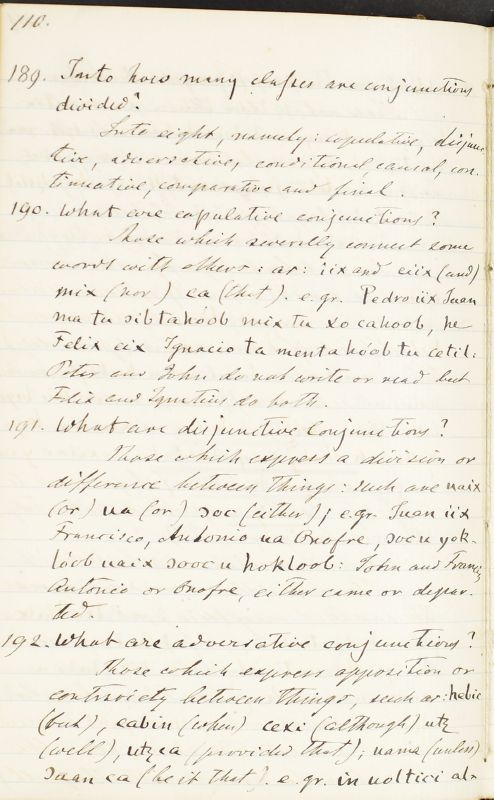 110.
189. Into how many classes are conjunctions
divided?
Into eight, namely: copulative, disjunc
tive, adversative, conditional, causal, con-
tinuative, comparative and final.
190. What are copulative conjunctions?
Those which severally connect some
words with others: as: iix and eiix (and)
mix (nor) ca (that). e.gr. Pedro iix Juan
ma tu sibtahoob mix tu xocahoob, he
Felix eix Ignacio ta mentahóob tu cetil:
Peter and John do not write or read but
Felix and Ignatius do both.
191. What are disjunctive Conjunctions?
Those which express a division or
difference between things: such are uaix
(or) ua (or) soc (either); e.gr. Juan iix
Francisco, Antonio ua Onofre, socu yok-
lóob uaix sooc u hokloob: John and Francis
Antonio or Onofre, either came or depar-
ted.
192. What are adversative conjunctions?
Those which express apposition or
contrariety between things, such as: hebic
(but), cabin (when) cexi (although) utz
(well), utz ca (provided that); uama (unless)
Juan ca (be it that). e.gr. in uoltici al-